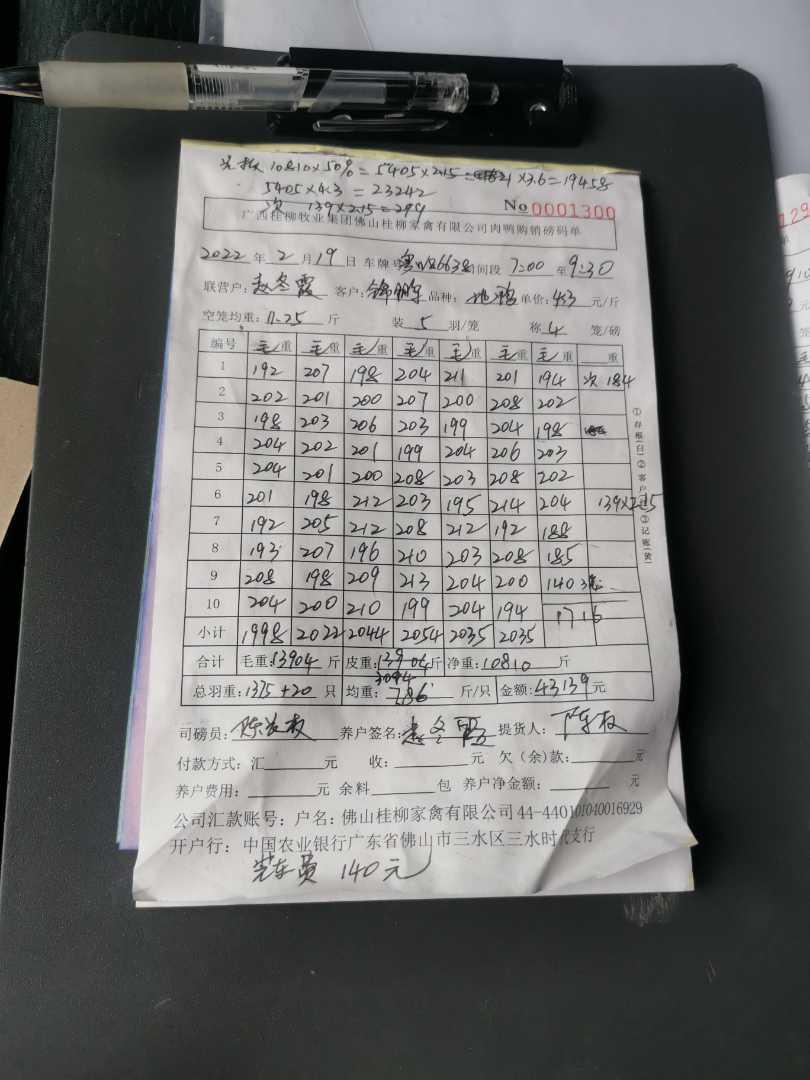 光板 10810×50%=5405×2.15= ×3.6=19458
5405×4.3=23242
次 139×2.15=299
No 0001300
广西桂柳牧业集团佛山桂柳家禽有限公司肉鸭购销磅码单
2022年2月19日 车牌 6638 时间段 7:00 至 9:30
联营户: 赵冬霞 客户: 品种: 单价: 元/斤
空笼均重: 11.25 斤 装 5 羽/笼 称 4 笼/磅
编号 毛重 毛重 毛重 毛重 毛重 毛重 毛重 重
1 192 207 198 204 211 201 194 次184
2 202 201 200 207 200 208 202
3 198 203 206 203 199 204 198
4 204 202 201 199 204 206 203
5 204 201 200 208 203 208 202
6 201 198 212 203 195 214 204 139×2.15
7 192 205 212 208 212 192 188
8 193 207 196 210 203 208 185
9 208 198 209 213 204 200 140
10 204 200 210 199 204 194 1716
小计 1998 2022 2044 2054 2035 2035
合计 毛重: 13904 斤 皮重: 13904 斤 净重: 10810 斤
3094
总羽重: 1375+20 只 均重: 7.86 斤/只 金额: 43139 元
司磅员: 养户签名: 赵冬霞 提货人:
付款方式: 汇 元 收: 元 欠(余)款: 元
养户费用: 元 余料 包 养户净金额: 元
公司汇款账号: 户名: 佛山桂柳家禽有限公司 44-440101040016929
开户行: 中国农业银行广东省佛山市三水区三水时代支行
装车费 140元
①存根(白)②客户 ③记账(黄)